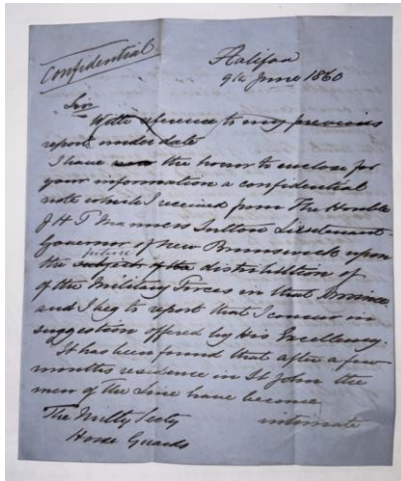 Confidential
Halifax
9th June 1860
Sir
With reference to my previous
report under date
I have the honor to enclose for
your information a confidential
note which I received from The Honble
J H T Manners Sutton Lieutenant
Governor of New Brunswick upon
the future distribution of
of the Military Forces in that Province
and I beg to report that I concur in
suggestion offered by His Excellency.
It has been found that after a few
months residence in St John the
men of the Line have become
intimate
The Milty Secty
Horse Guards